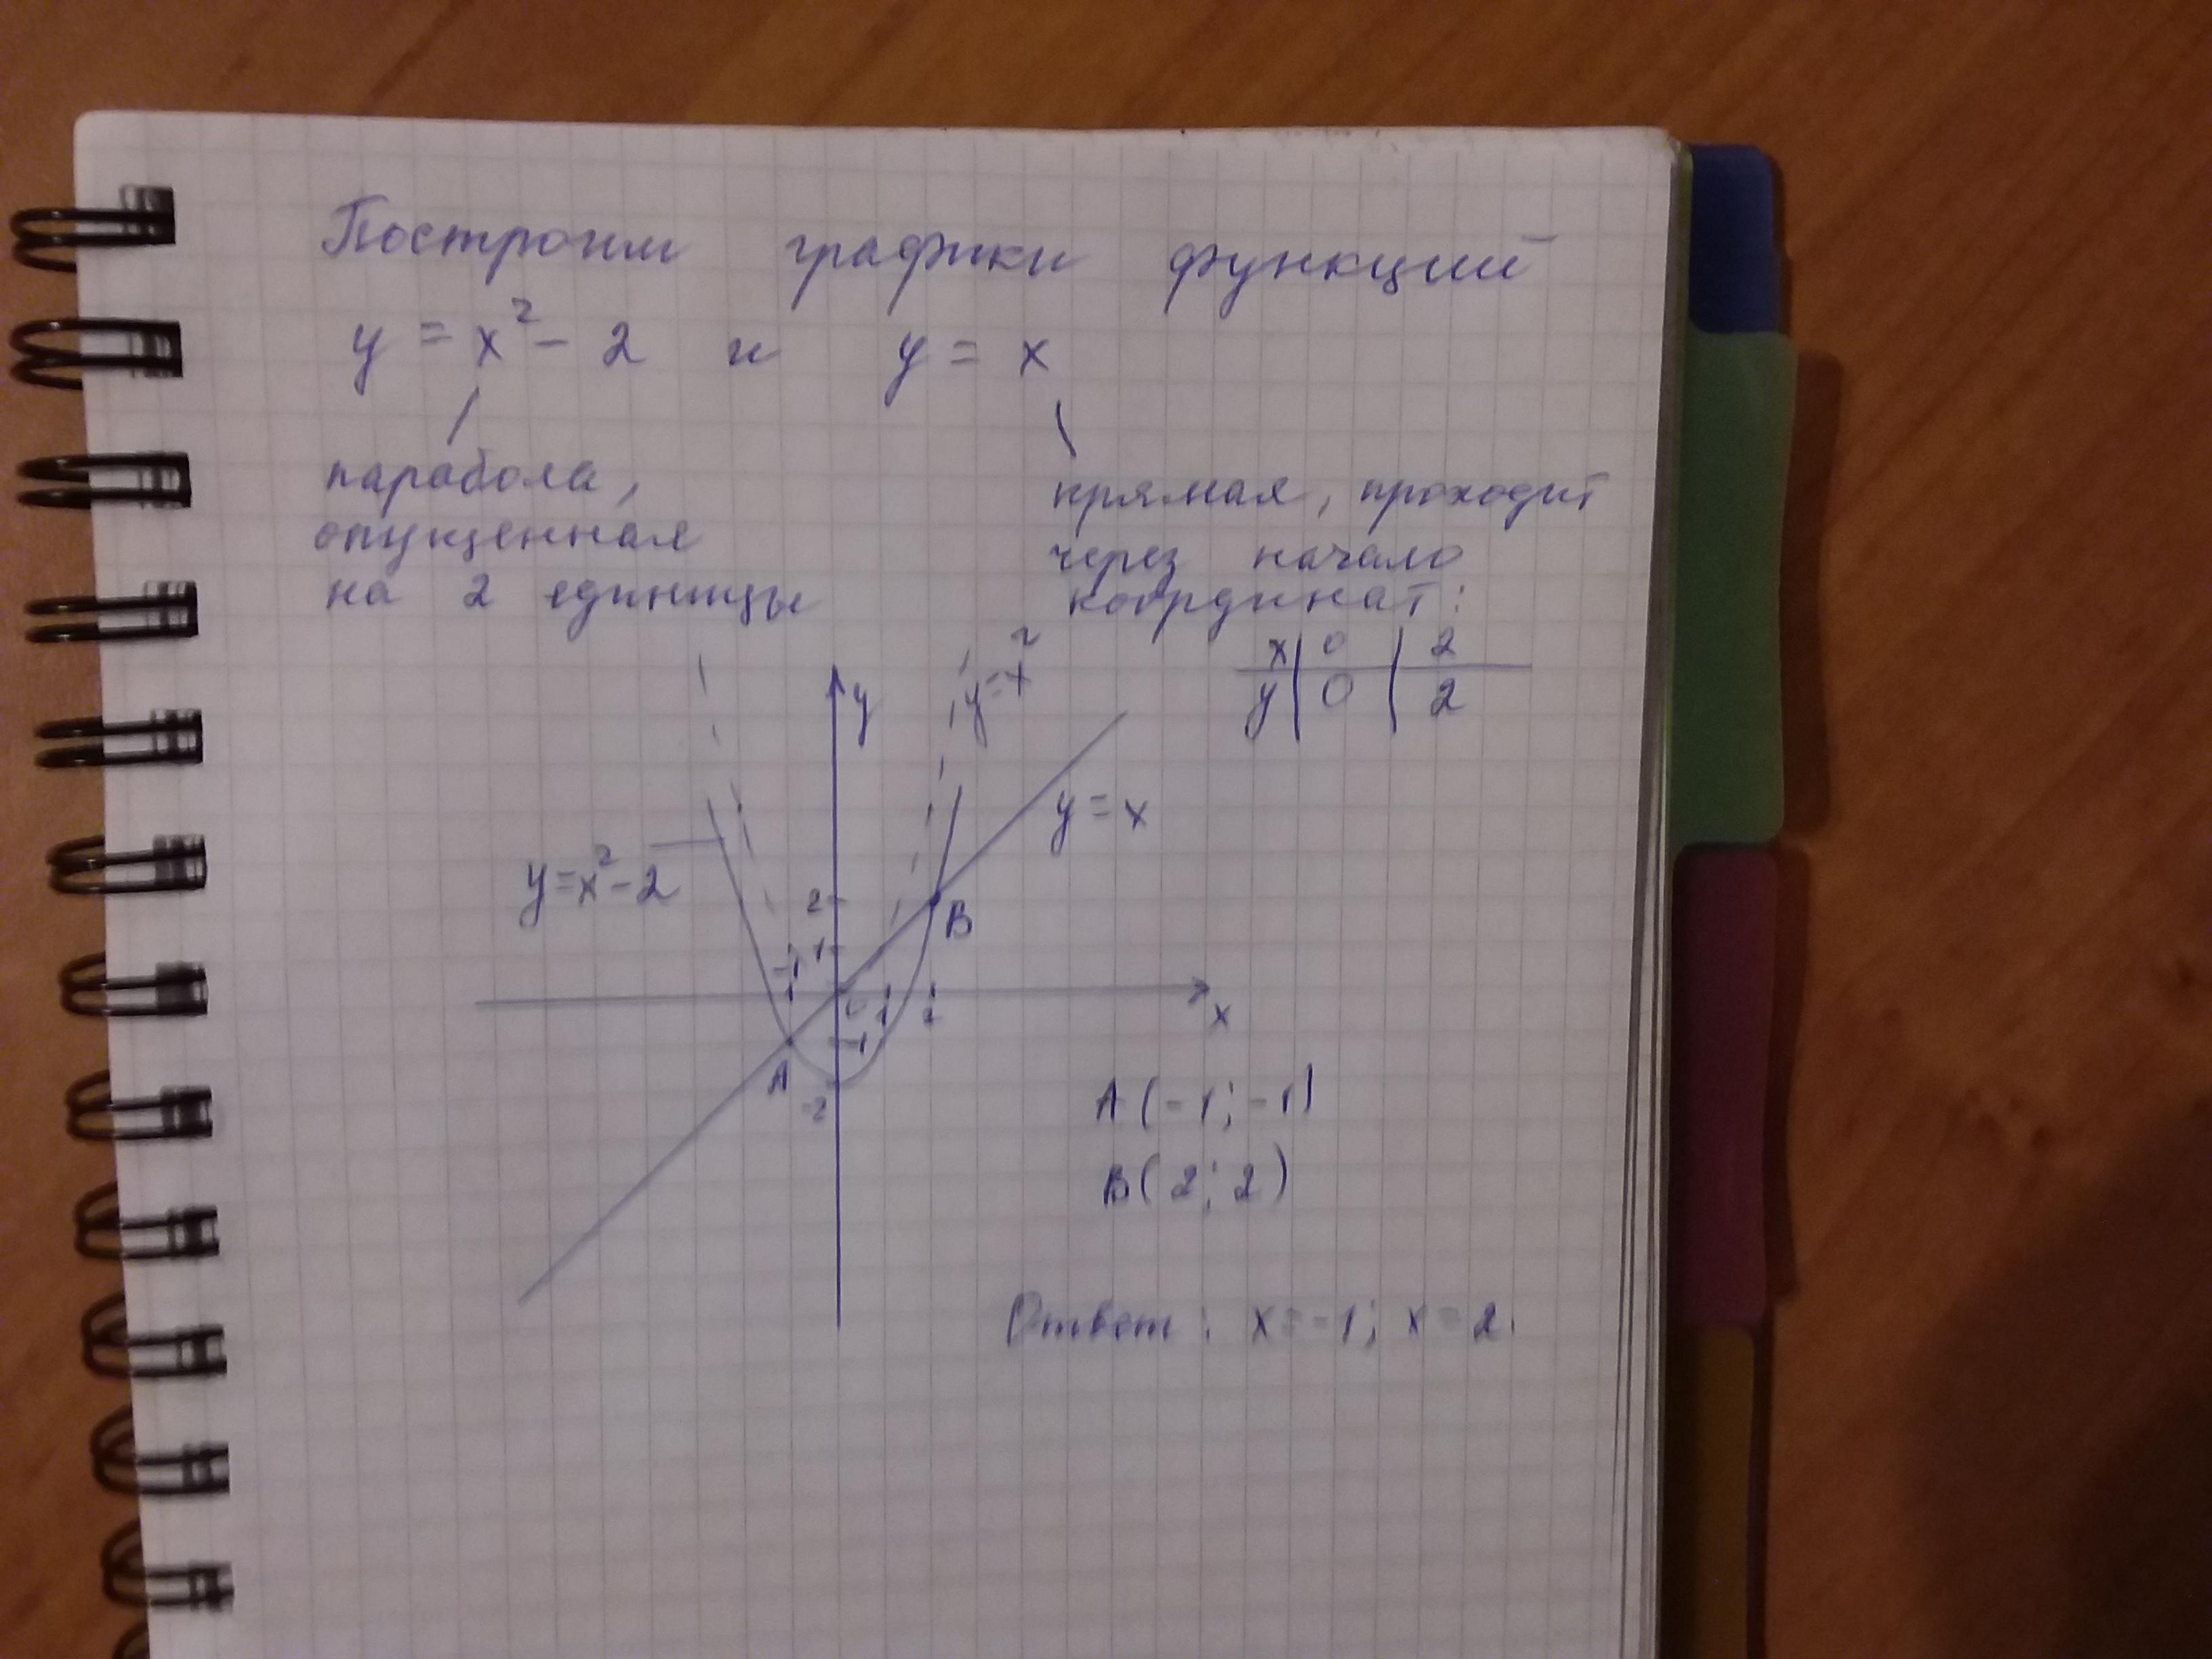 Построим графики функций
y = x² - 2 и y = x
парабола,
опущенная
на 2 единицы
прямая, проходит
через начало
координат:
x | 0 | 2
y | 0 | 2
y
y=x²
y = x
y=x²-2
2
B
-1
1
0
1
2
x
-1
A
-2
A (-1; -1)
B (2; 2)
Ответ: x=-1; x=2.